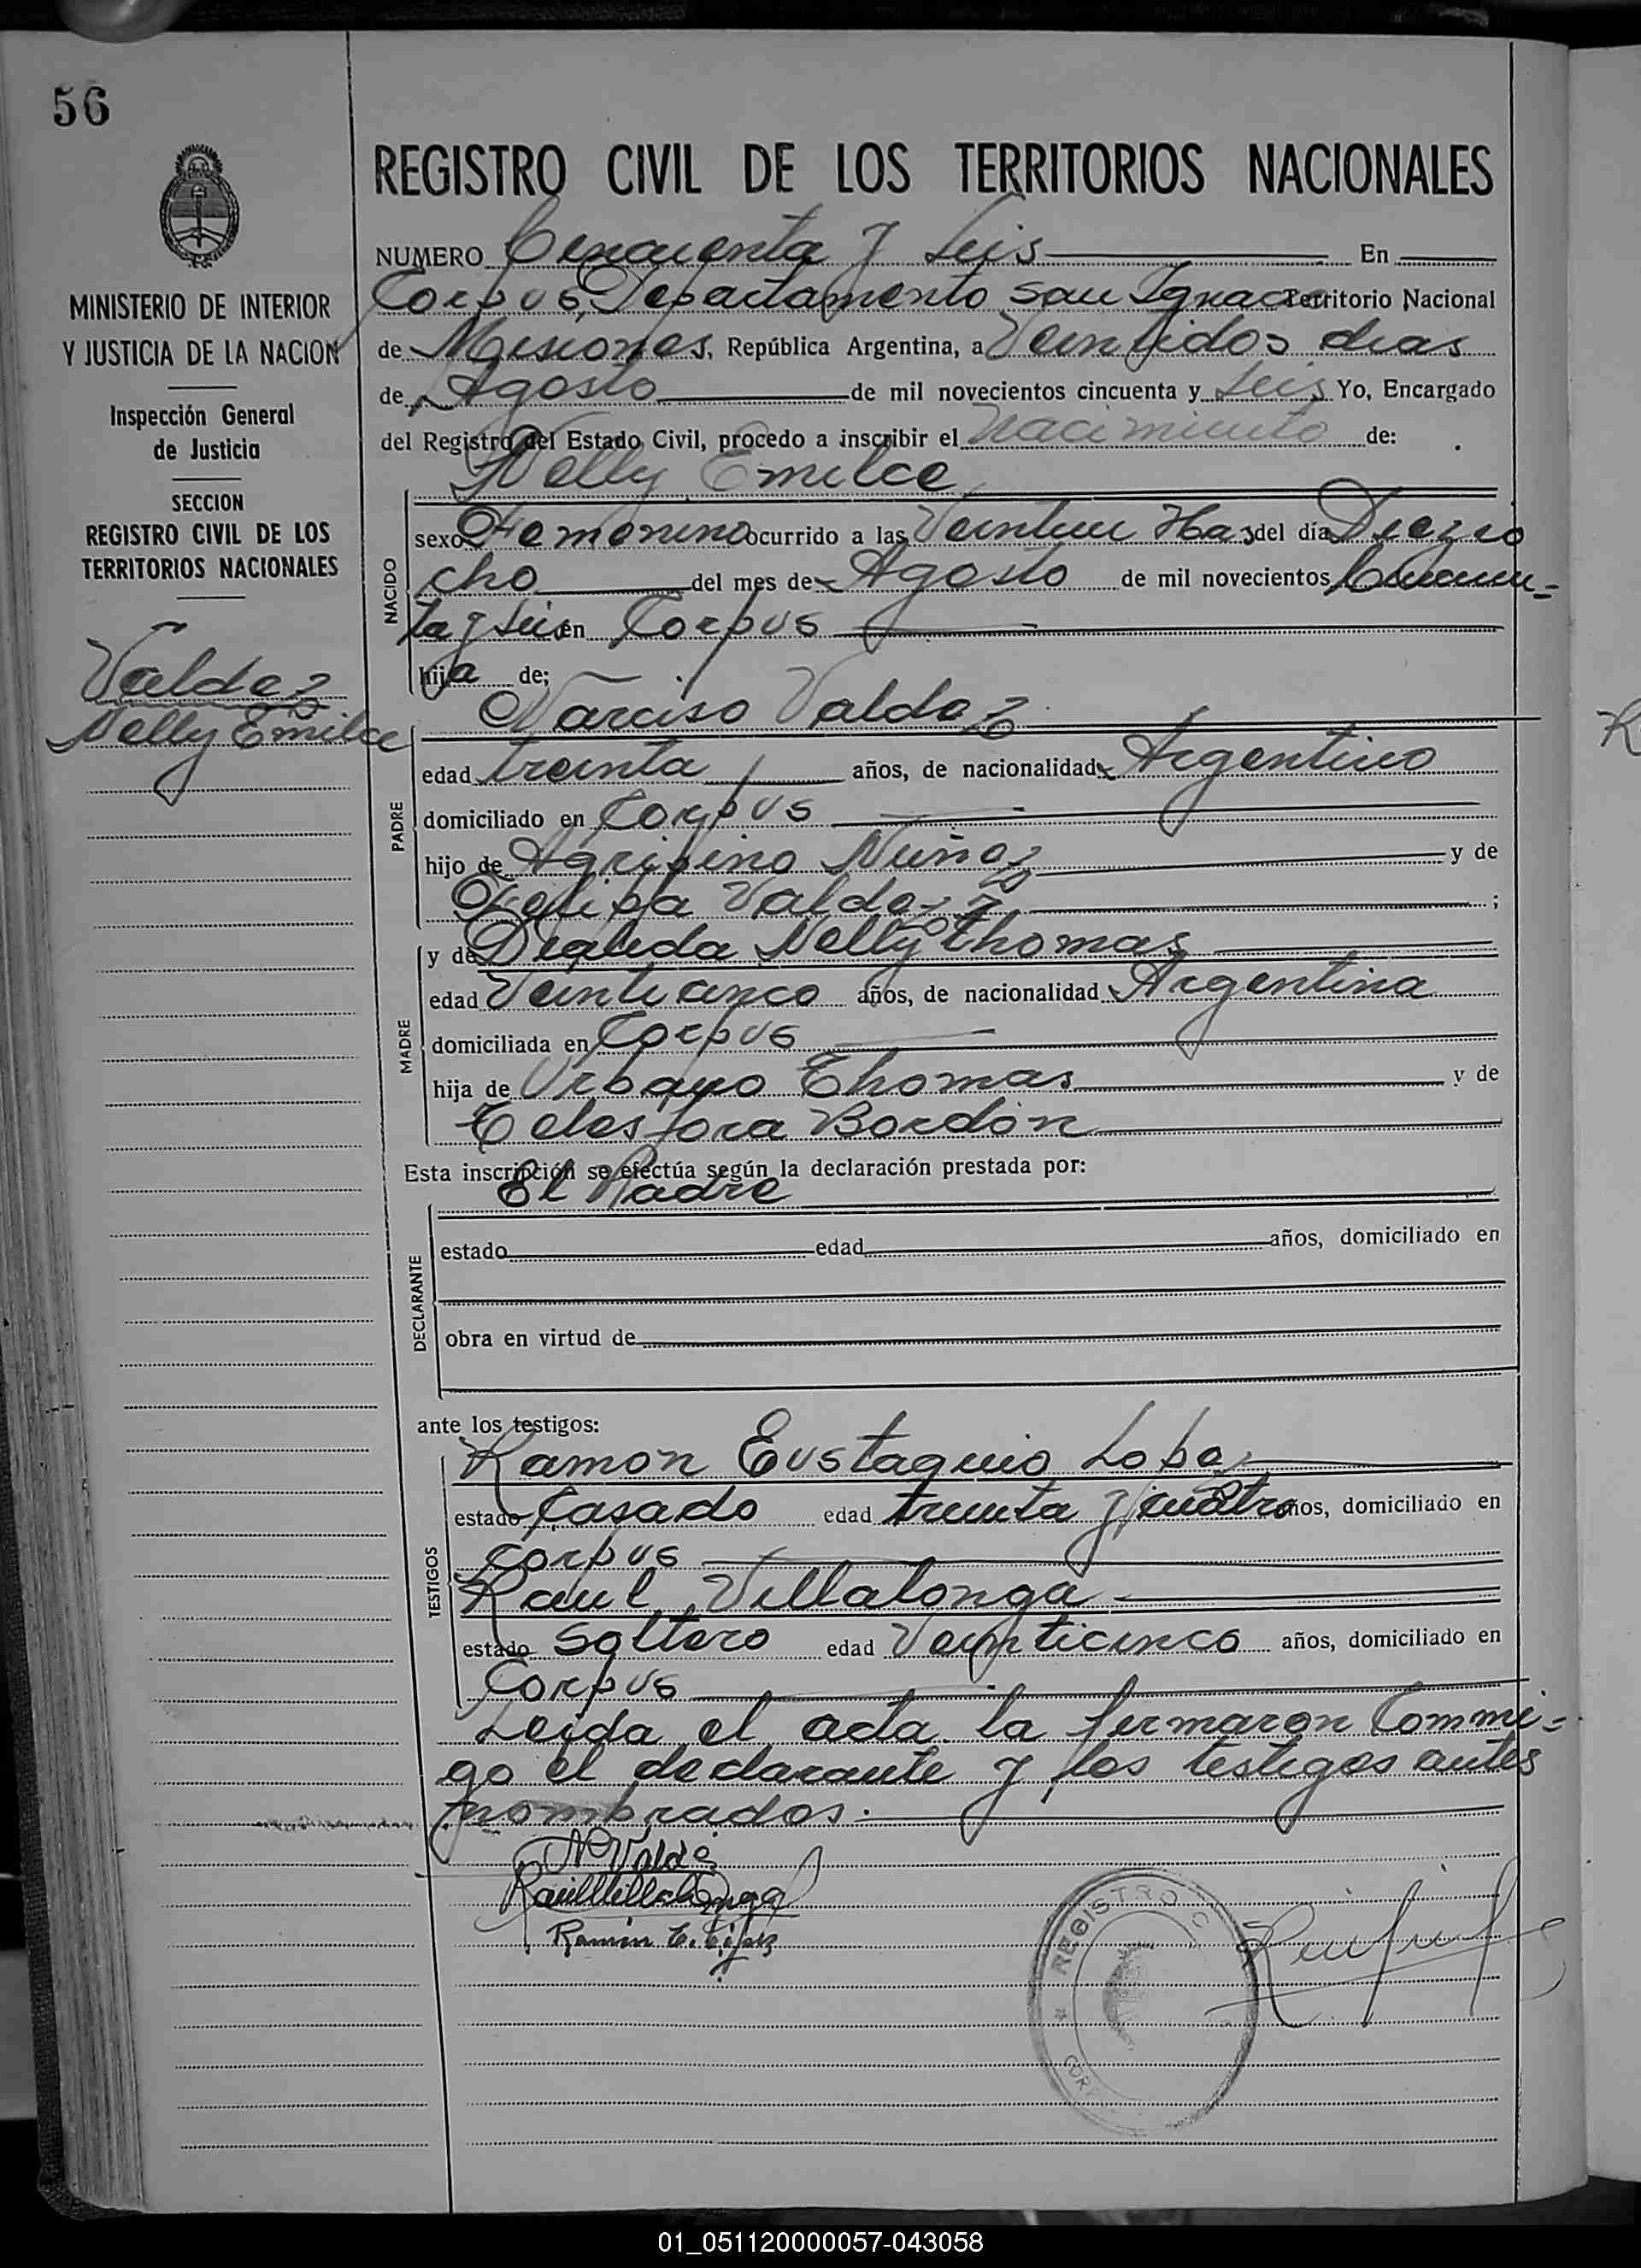 56
REGISTRO CIVIL DE LOS TERRITORIOS NACIONALES
MINISTERIO DE INTERIOR
Y JUSTICIA DE LA NACION
Inspección General
de Justicia
SECCION
REGISTRO CIVIL DE LOS
TERRITORIOS NACIONALES
Valdez
Nelly Emilce
NUMERO Cincuenta y Seis En
Corpus, Departamento San Ignacio Territorio Nacional
de Misiones, República Argentina, a Veintidos dias
de Agosto de mil novecientos cincuenta y Seis Yo, Encargado
del Registro del Estado Civil, procedo a inscribir el Nacimiento de:
Nelly Emilce
NACIDO
sexo Femenino ocurrido a las Veintiun Has del día Diezio
cho del mes de Agosto de mil novecientos Cincuen-
ta y Seis en Corpus
hija de;
PADRE
Narciso Valdez
edad treinta años, de nacionalidad Argentino
domiciliado en Corpus
hijo de Agripino Nuñez y de
Felipa Valdez ;
MADRE
y de Nelly Thomas
edad Veinticinco años, de nacionalidad Argentina
domiciliada en Corpus
hija de Urbano Thomas y de
Telesfora Bordón
Esta inscripción se efectúa según la declaración prestada por:
El Padre
DECLARANTE
estado edad años, domiciliado en
obra en virtud de
ante los testigos:
TESTIGOS
Ramon Eustaquio Lopez
estado Casado edad treinta y cuatro años, domiciliado en
Corpus
Raul Villalonga
estado Soltero edad Veinticinco años, domiciliado en
Corpus
Leida el acta la firmaron Commi=
go el declarante y los testigos antes
nombrados.
N Valdez
Raul Villalonga
Ramón E. López
REGISTRO C
COR
01_051120000057-043058